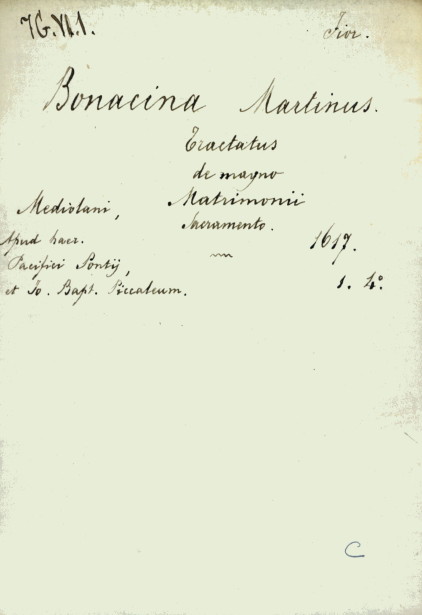 7G.VI.1. Fior.
Bonacina Martinus.
Tractatus
de magno
Mediolani, Matrimonii
Sacramento.
Apud haer. 1617.
Pacifici Pontij,
et Io. Bapt. Piccaleum. 1. 4°.
C